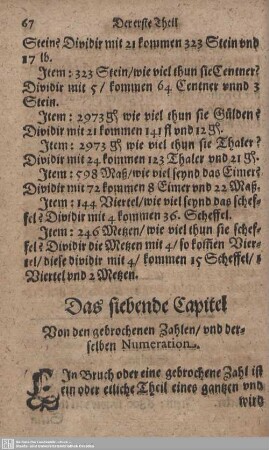 67 Der erste Theil
Stein? Dividir mit 21 kommen 323 Stein vnd
17 lb.
Item: 323 Stein/wie viel thun sie Centner?
Dividir mit 5/ kommen 64 Centner vnnd 3
Stein.
Item: 2973 gl. wie viel thun sie Gülden?
Dividir mit 21 kommen 141 fl vnd 12 gl.
Item: 2973 gl wie viel thun sie Thaler?
Dividir mit 24 kommen 123 Thaler vnd 21 gl.
Item: 598 Maß/wie viel seynd das Eimer?
Dividir mit 72 kommen 8 Eimer vnd 22 Maß.
Item: 144 Viertel/wie viel seynd das schef-
fel? Dividir mit 4 kommen 36. Scheffel.
Item: 246 Metzen/ wie viel thun sie schef-
fel? Dividir die Metzen mit 4/ so kom̃en Vier-
tel/ diese dividir mit 4/ kommen 15 Scheffel/ 1
Viertel vnd 2 Metzen.
Das siebende Capitel
Von den gebrochenen Zahlen/ vnd der-
selben Numeration.
EIn Bruch oder eine gebrochene Zahl ist
ein oder etliche Theil eines gantzen vnd
wird